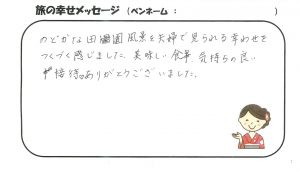 旅の幸せメッセージ (ペンネーム : )
のどかな田園風景を夫婦で見られる幸わせを
つくづく感じました。美味しい食事、気持ちの良い
接待。ありがとうございました。